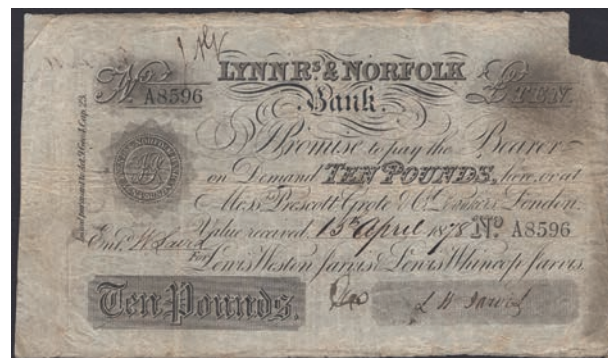 No A8596
LYNN Rs & NORFOLK
£ TEN
Bank.
I Promise to pay the Bearer
on Demand TEN POUNDS, here, or at
Messrs Prescott Grote & Co. Bankers London.
Value received. 15th April 1878 No A8596
Entd.
For Lewis Weston Jarvis & Lewis Whincop Jarvis.
Ten Pounds.